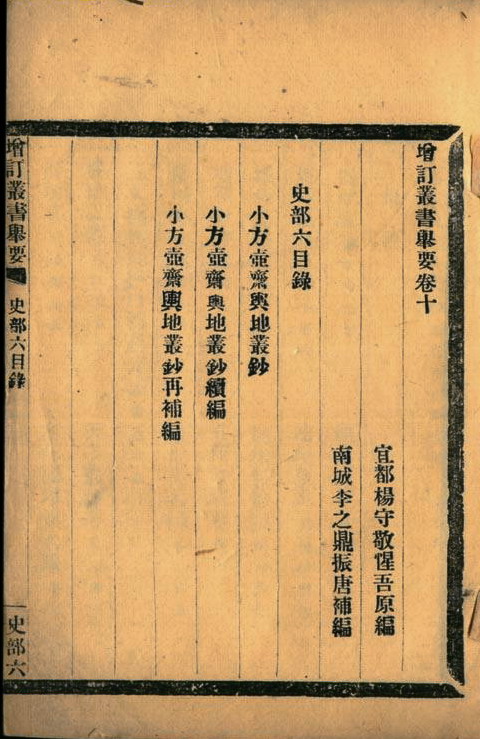 增訂叢書舉要卷十
宜都楊守敬惺吾原編
南城李之鼎振唐補編
史部六目錄
小方壺齋輿地叢鈔
小方壺齋輿地叢鈔續編
小方壺齋輿地叢鈔再補編
增訂叢書舉要
史部六目錄
一
史部六